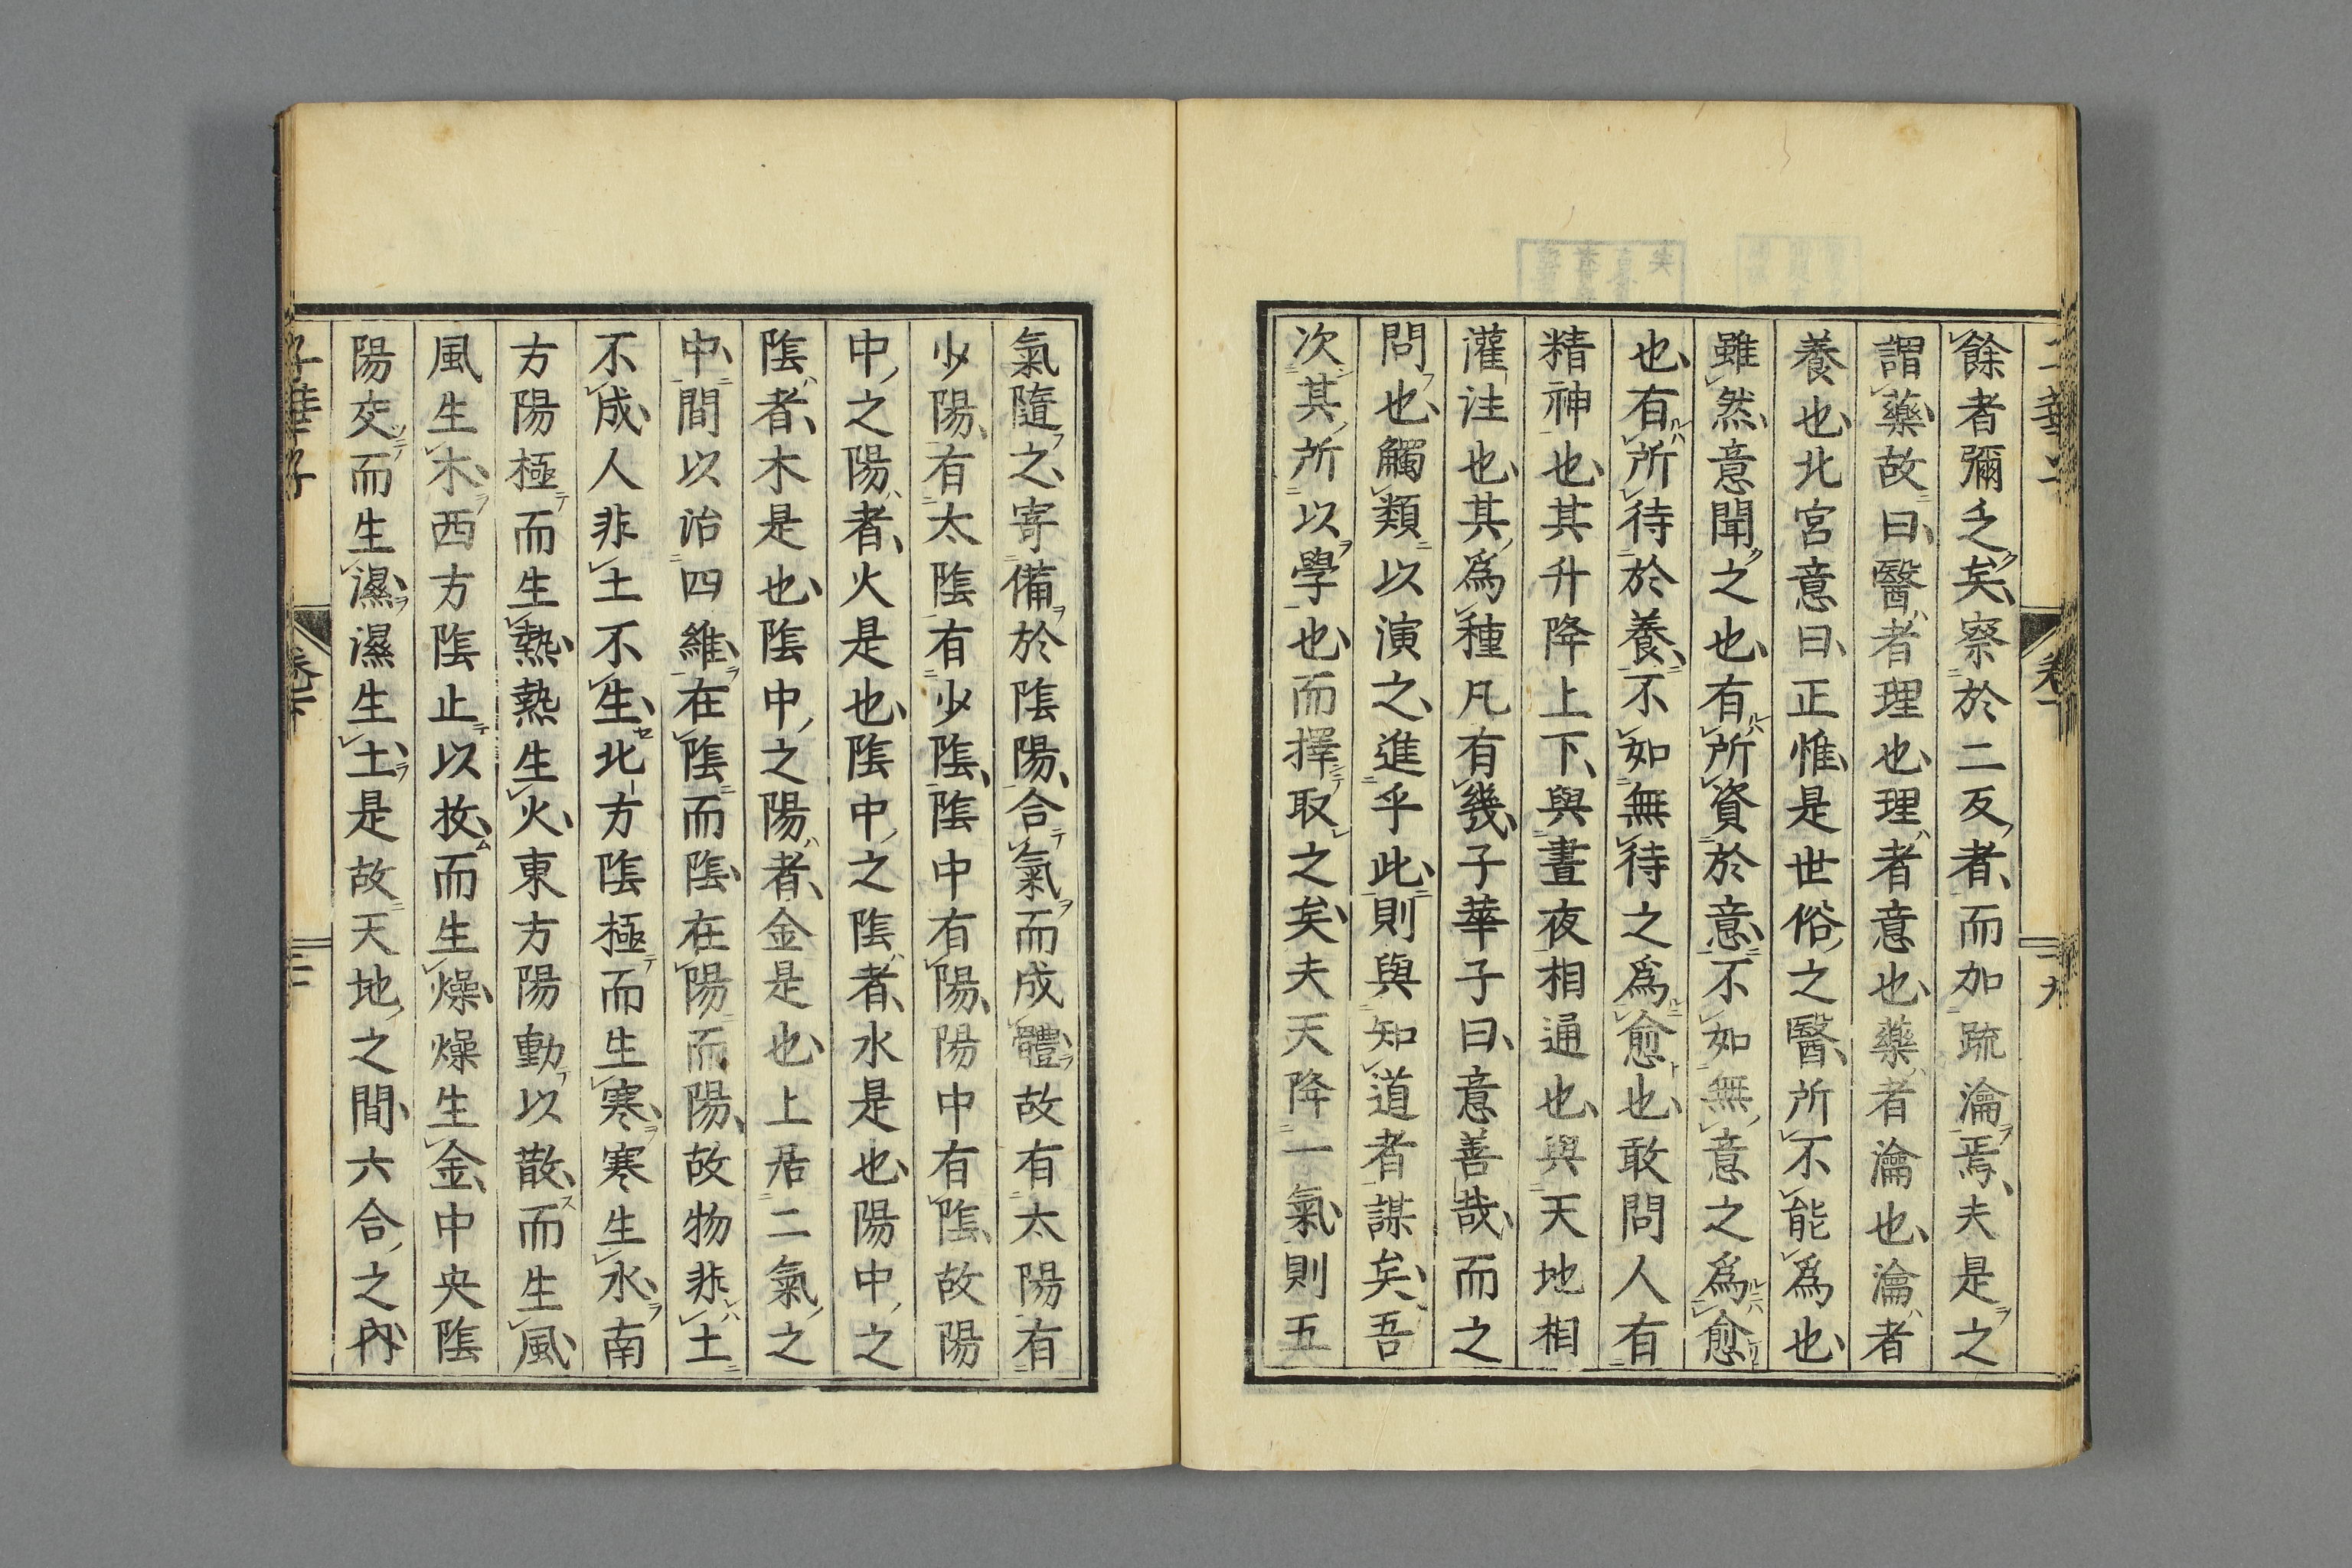 餘者彌乏矣察於二反者而加疏瀹焉夫是之
謂藥故曰醫者理也理者意也藥者瀹也瀹者
養也北宮意曰正惟是世俗之醫所不能爲也
雖然意聞之也有所資於意不如無意之爲愈
也有所待於養不如無待之爲愈也敢問人有
精神也其升降上下與晝夜相通也與天地相
灌注也其爲種凡有幾子華子曰意善哉而之
問也觸類以演之進乎此則與知道者謀矣吾
次其所以學也而擇取之矣夫天降一氣則五
氣隨之寄備於陰陽合氣而成體故有太陽有
少陽有太陰有少陰陰中有陽陽中有陰故陽
中之陽者火是也陰中之陰者水是也陽中之
陰者木是也陰中之陽者金是也上居二氣之
中間以治四維在陰而陰在陽而陽故物非土
不成人非土不生北方陰極而生寒寒生水南
方陽極而生熱熱生火東方陽動以散而生風
風生木西方陰止以收而生燥燥生金中央陰
陽交而生濕濕生土是故天地之間六合之內
子華子 卷下